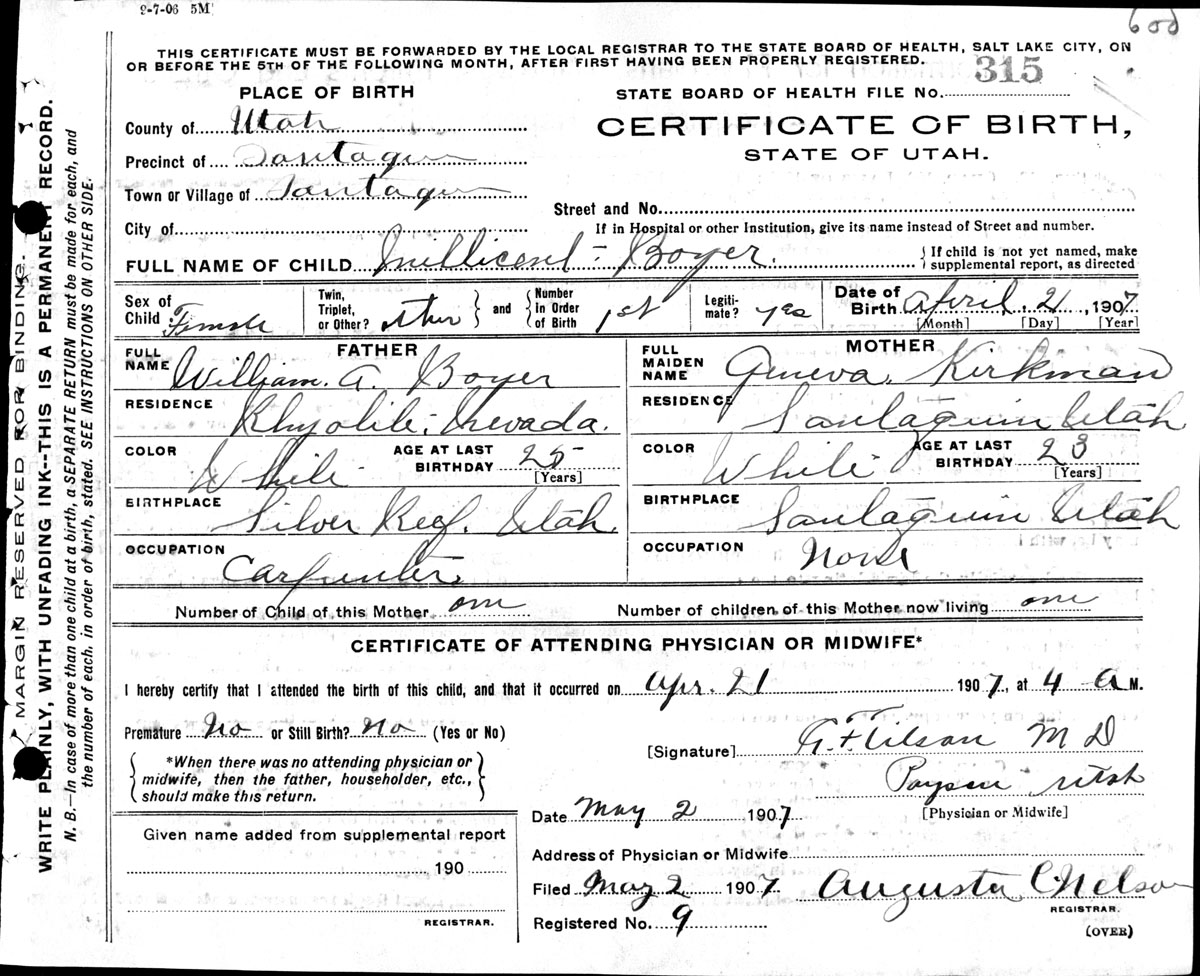 9-7-06 5M
600
THIS CERTIFICATE MUST BE FORWARDED BY THE LOCAL REGISTRAR TO THE STATE BOARD OF HEALTH, SALT LAKE CITY, ON
OR BEFORE THE 5TH OF THE FOLLOWING MONTH, AFTER FIRST HAVING BEEN PROPERLY REGISTERED.
315
PLACE OF BIRTH
STATE BOARD OF HEALTH FILE No.
County of Utah
CERTIFICATE OF BIRTH,
STATE OF UTAH.
Precinct of Santaquin
Town or Village of Santaquin
Street and No.
City of
If in Hospital or other Institution, give its name instead of Street and number.
FULL NAME OF CHILD Millicent Boyer.
{If child is not yet named, make
supplemental report, as directed
Sex of Child Female
Twin, Triplet, or Other? other
and
Number in Order of Birth 1st
Legiti-mate? yes
Date of Birth April 21, 1907
[Month] [Day] [Year]
FATHER
FULL NAME William. A. Boyer
RESIDENCE Rhyolite, Nevada.
COLOR White
AGE AT LAST BIRTHDAY 25
[Years]
BIRTHPLACE Silver Reef. Utah.
OCCUPATION Carpenter
MOTHER
FULL MAIDEN NAME Geneva. Kirkman
RESIDENCE Santaquin Utah
COLOR White
AGE AT LAST BIRTHDAY 23
[Years]
BIRTHPLACE Santaquin Utah
OCCUPATION None
Number of Child of this Mother one
Number of children of this Mother now living one
CERTIFICATE OF ATTENDING PHYSICIAN OR MIDWIFE*
I hereby certify that I attended the birth of this child, and that it occurred on Apr. 21 1907, at 4 A M.
Premature No or Still Birth? No (Yes or No)
[Signature] A. F. Tilson M D
Payson Utah
[Physician or Midwife]
*When there was no attending physician or
midwife, then the father, householder, etc.,
should make this return.
Date May 2 1907
Given name added from supplemental report
190
REGISTRAR.
Address of Physician or Midwife
Filed May 2 1907.
Augusta C Nelson
REGISTRAR.
Registered No. 9
(OVER)
MARGIN RESERVED FOR BINDING.
WRITE PLAINLY, WITH UNFADING INK--THIS IS A PERMANENT RECORD.
N. B.—In case of more than one child at a birth, a SEPARATE RETURN must be made for each, and
the number of each, in order of birth, stated. SEE INSTRUCTIONS ON OTHER SIDE.